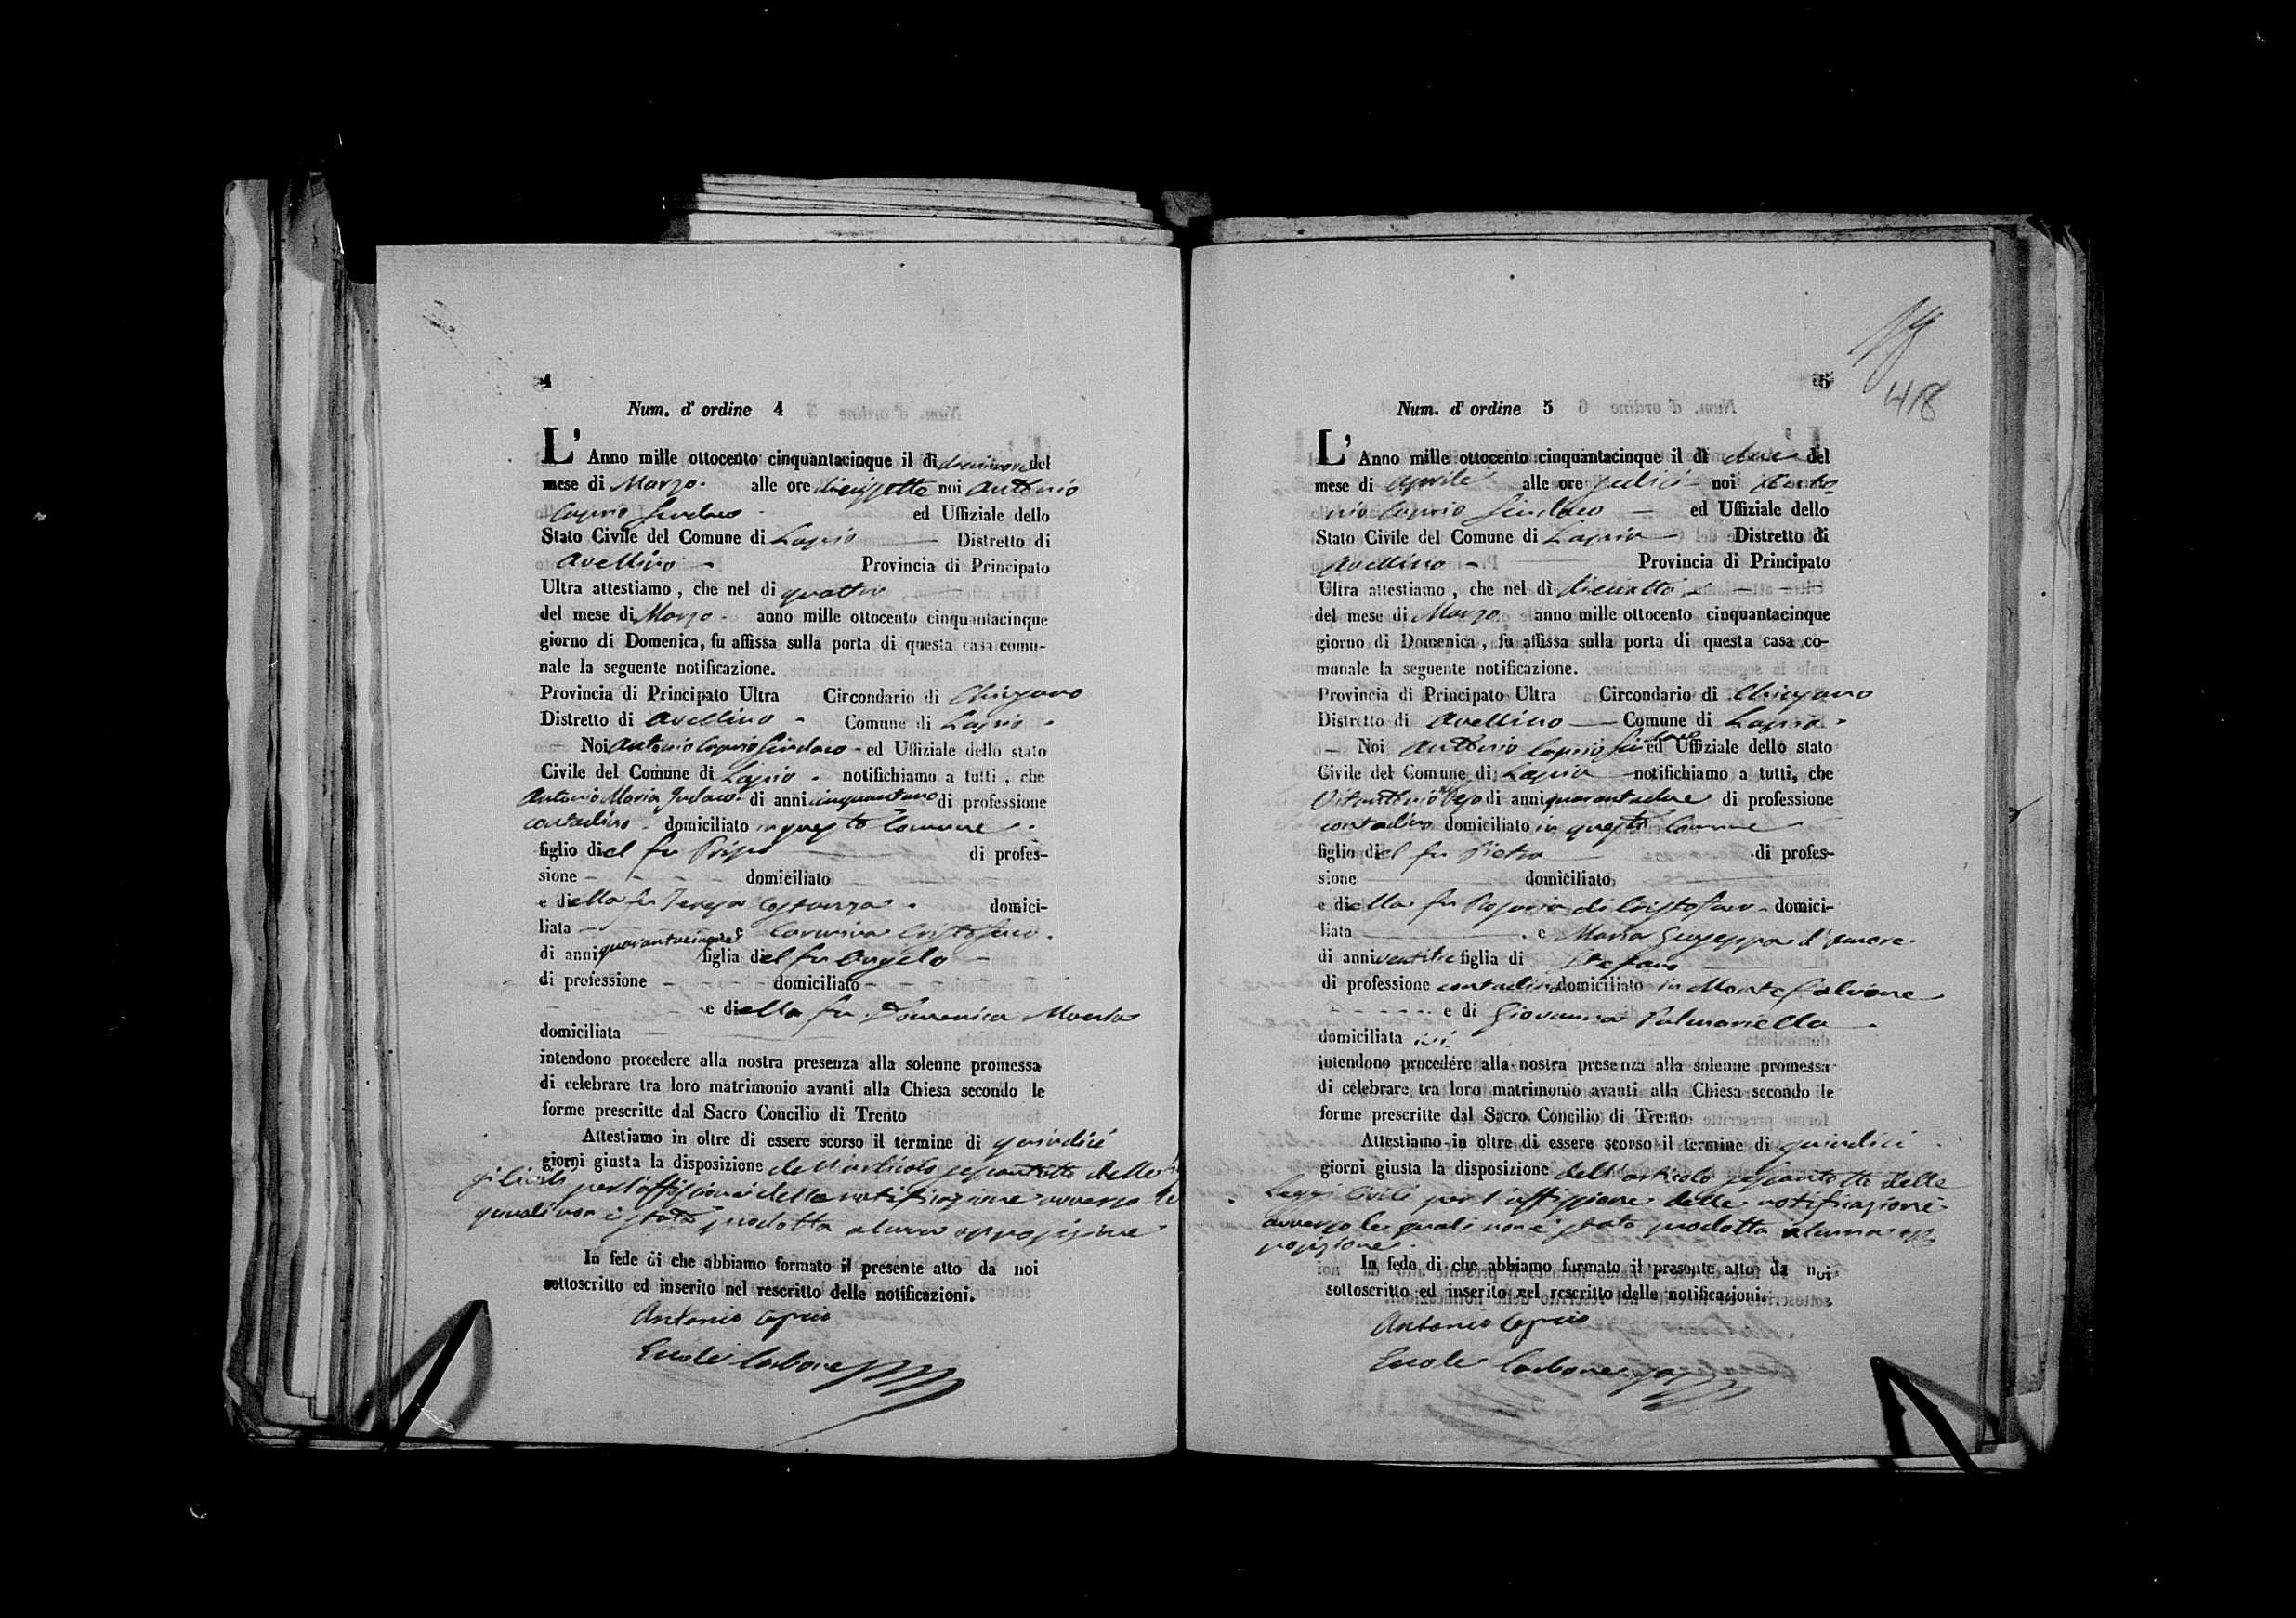 4
Num. d' ordine 4
L' Anno mille ottocento cinquantacinque il dì del
mese di Marzo. alle ore diecisette noi Antonio
Caprio Sindaco ed Uffiziale dello
Stato Civile del Comune di Lapio — Distretto di
Avellino - Provincia di Principato
Ultra attestiamo, che nel di quattro
del mese di Marzo - anno mille ottocento cinquantacinque
giorno di Domenica, fu affissa sulla porta di questa casa comu-
nale la seguente notificazione.
Provincia di Principato Ultra Circondario di Chiusano
Distretto di Avellino - Comune di Lapio -
— Noi Antonio Caprio Sindaco - ed Uffiziale dello stato
Civile del Comune di Lapio - notifichiamo a tutti, che
Antonio Maria di anni cinquantuno di professione
contadino - domiciliato in questo Comune -
figlio di el fu — di profes-
sione - - - - domiciliato —
e di ella fu Teresa Costanza - domici-
liata - - e Carmina Cristofaro.
di anni quarantacinque figlia di el fu Angelo -
di professione - - - domiciliato - -
- - - e di ella fu Domenica
domiciliata —
intendono procedere alla nostra presenza alla solenne promessa
di celebrare tra loro matrimonio avanti alla Chiesa secondo le
forme prescritte dal Sacro Concilio di Trento
Attestiamo in oltre di essere scorso il termine di quindici
giorni giusta la disposizione dell'articolo sessantotto delle
civili per l'affissione delle notificazione avverso le
quali non è stata prodotta alcuna opposizione
In fede di che abbiamo formato il presente atto da noi
sottoscritto ed inserito nel rescritto delle notificazioni.
Antonio Caprio
Ercole Carbone
5
418
Num. d' ordine 5
L' Anno mille ottocento cinquantacinque il dì due del
mese di Aprile alle ore quindici noi Anto-
nio Caprio Sindaco — ed Uffiziale dello
Stato Civile del Comune di Lapio — Distretto di
Avellino - — Provincia di Principato
Ultra attestiamo, che nel dì dieciotto - - -
del mese di Marzo anno mille ottocento cinquantacinque
giorno di Domenica, fu affissa sulla porta di questa casa co-
munale la seguente notificazione.
Provincia di Principato Ultra Circondario di Chiusano
Distretto di Avellino — Comune di Lapio -
— Noi Antonio Caprio Sindaco ed Uffiziale dello stato
Civile del Comune di Lapio — notifichiamo a tutti, che
Vitantonio di anni quarantadue di professione
contadino domiciliato in questo Comune
figlio di el fu Pietro — di profes-
sione — domiciliato —
e di ella fu Rosaria di Cristofaro - domici-
liata — e Maria Giuseppa d'Amore
di anni ventitre figlia di Stefano —
di professione contadino domiciliato in Montefalcione
- - - - - e di Giovanna Palmariello -
domiciliata ivi
intendono procedere alla nostra presenza alla solenne promessa
di celebrare tra loro matrimonio avanti alla Chiesa secondo le
forme prescritte dal Sacro Concilio di Trento
Attestiamo in oltre di essere scorso il termine di quindici
giorni giusta la disposizione dell'articolo sessantotto delle
Leggi Civili per l'affissione delle notificazioni
avverso le quali non è stata prodotta alcuna op-
posizione.
In fede di che abbiamo formato il presente atto da noi
sottoscritto ed inserito nel rescritto delle notificazioni.
Antonio Caprio
Ercole Carbone